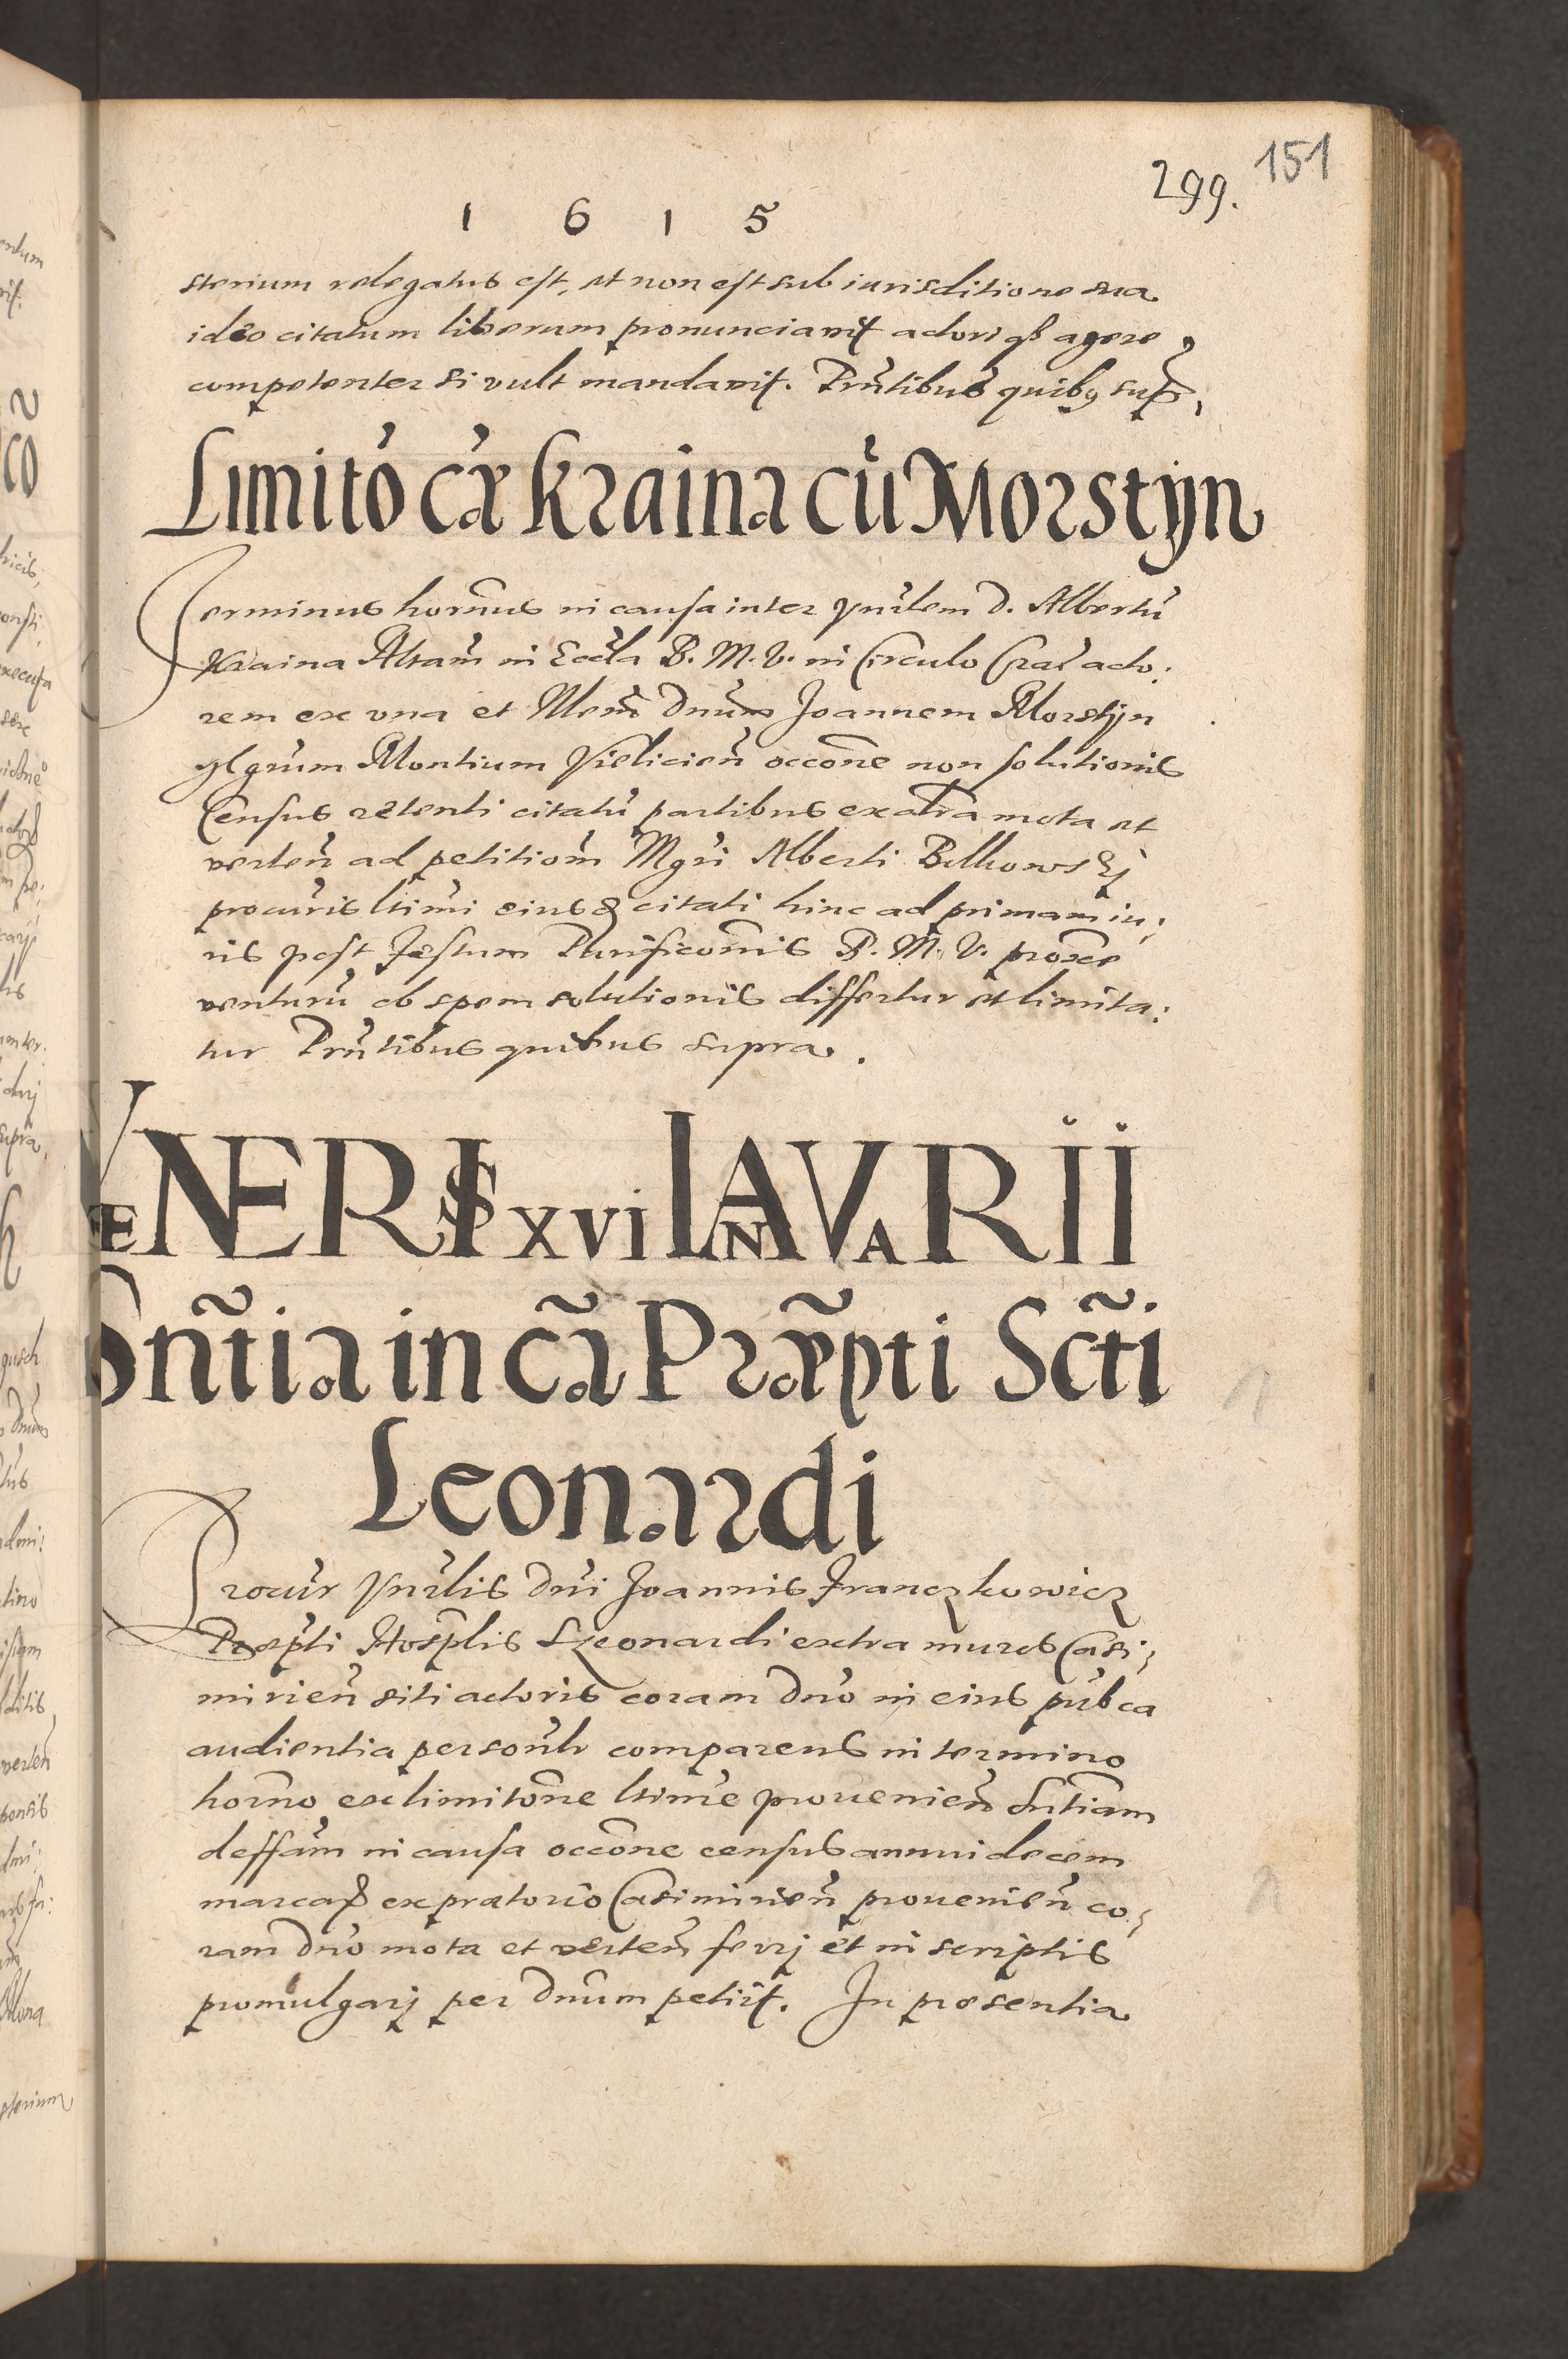 151
299.
1 6 1 5
sterium relegatus est, et non est sub iurisditione sua
ideo citatum liberum pronunciavit actori qz agere
competenter si vult mandavit. Pñtibus quibus supra
Limitō cā Kraina cū Morstyn
Terminus hornus in causa inter Vnrlem D. Albertū
Kraina Altarm in Eccla B. M. V. in Circulo Crac acto:
rem ex una et Mcm Dnum Joannem Morstyn
Montium Vielicien occōne non solutionis
Census retenti citatū partibus ex altra mota et
verten ad petitiom Mgri Alberti Belkowskj
procuris ltimi eiusd citati hinc ad primam iu:
ris post Festum Purificōnis B. M. V. proxe
venturū ob spem solutionis differtur et limita:
tur Pñtibus quibus supra.
VENERIS XVI IANVARII
Sñtia in cā Præpti Scti
Leonardi
Procur Vnrlis Dni Joannis Franczkowicz
Præpti Hosplis S Leonardi extra muros Casi:
mirien siti actoris coram Dno in eius pubca
audientia personlr comparens in termino
horno ex limitōne ltime provenien Sntiam
deffam in causa occōne census annui decem
marcarz ex prætorio Casimirien provenien co:
ram Dno mota et verten ferrj et in scriptis
promulgarj per Dnum petiit. In præsentia